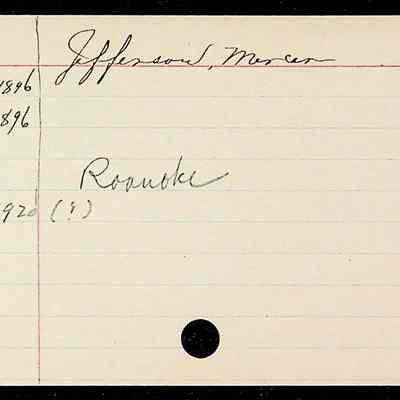 Jefferson, Mercer
1896
896
Roanoke
920 (?)